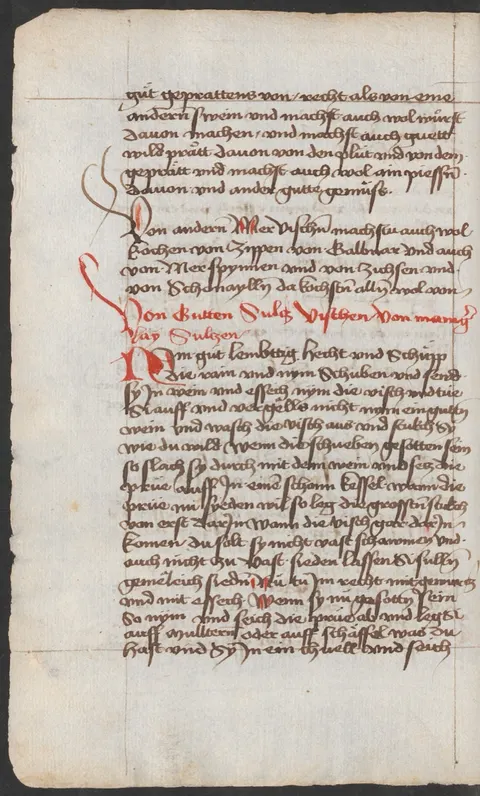 gůt geprattens von / recht als von eine
andern swein vnd machst auch wol würst
dauon machen / vnd machst auch guett
wild prätt dauon von den plůt vnd von dem
geprätt vnd machst auch wol ain pfeffn
dauon vnd ander gutte gemüss.
Von andern Mer vischn machstu auch wol
kochen von Zippen von vnd auch
von Merspynnen vnd von vnd
von Schnaylln da kochstu alln wol von
Von Gutten Sulcz Vischen Von maniger
lay Sulczen
Nym gut lembttig hecht vnd Schüpp
die rain vnd nym Schuben vnd send
sy In wein vnd essech nym die visch vnd tue
Si auff vnd vergells nicht nym ein gutten
wein vnd wasch die visch aus vnd stukch Sy
wie du wild wenn die schueben gesotten sein
so slach sy durch mit dem wein vnd secz die
prüe auff In eine schonn kessel wann die
prüe nu syeden wil so leg die grossen stukch
von erst dar In wann die visch gar dar In
komen / du solt sy nicht vast schawmen vnd
auch nicht zu vast sieden lassen Si sulln
gemeleich siedn Nu tu Im recht mit gewürcz
vnd mit essech Wenn sy nu gesottn sein
So nym vnd seich die prüe ab vnd leg Si
auff mulltern oder auff schässel was du
hast vnd Sy In ein chuell vnd seich